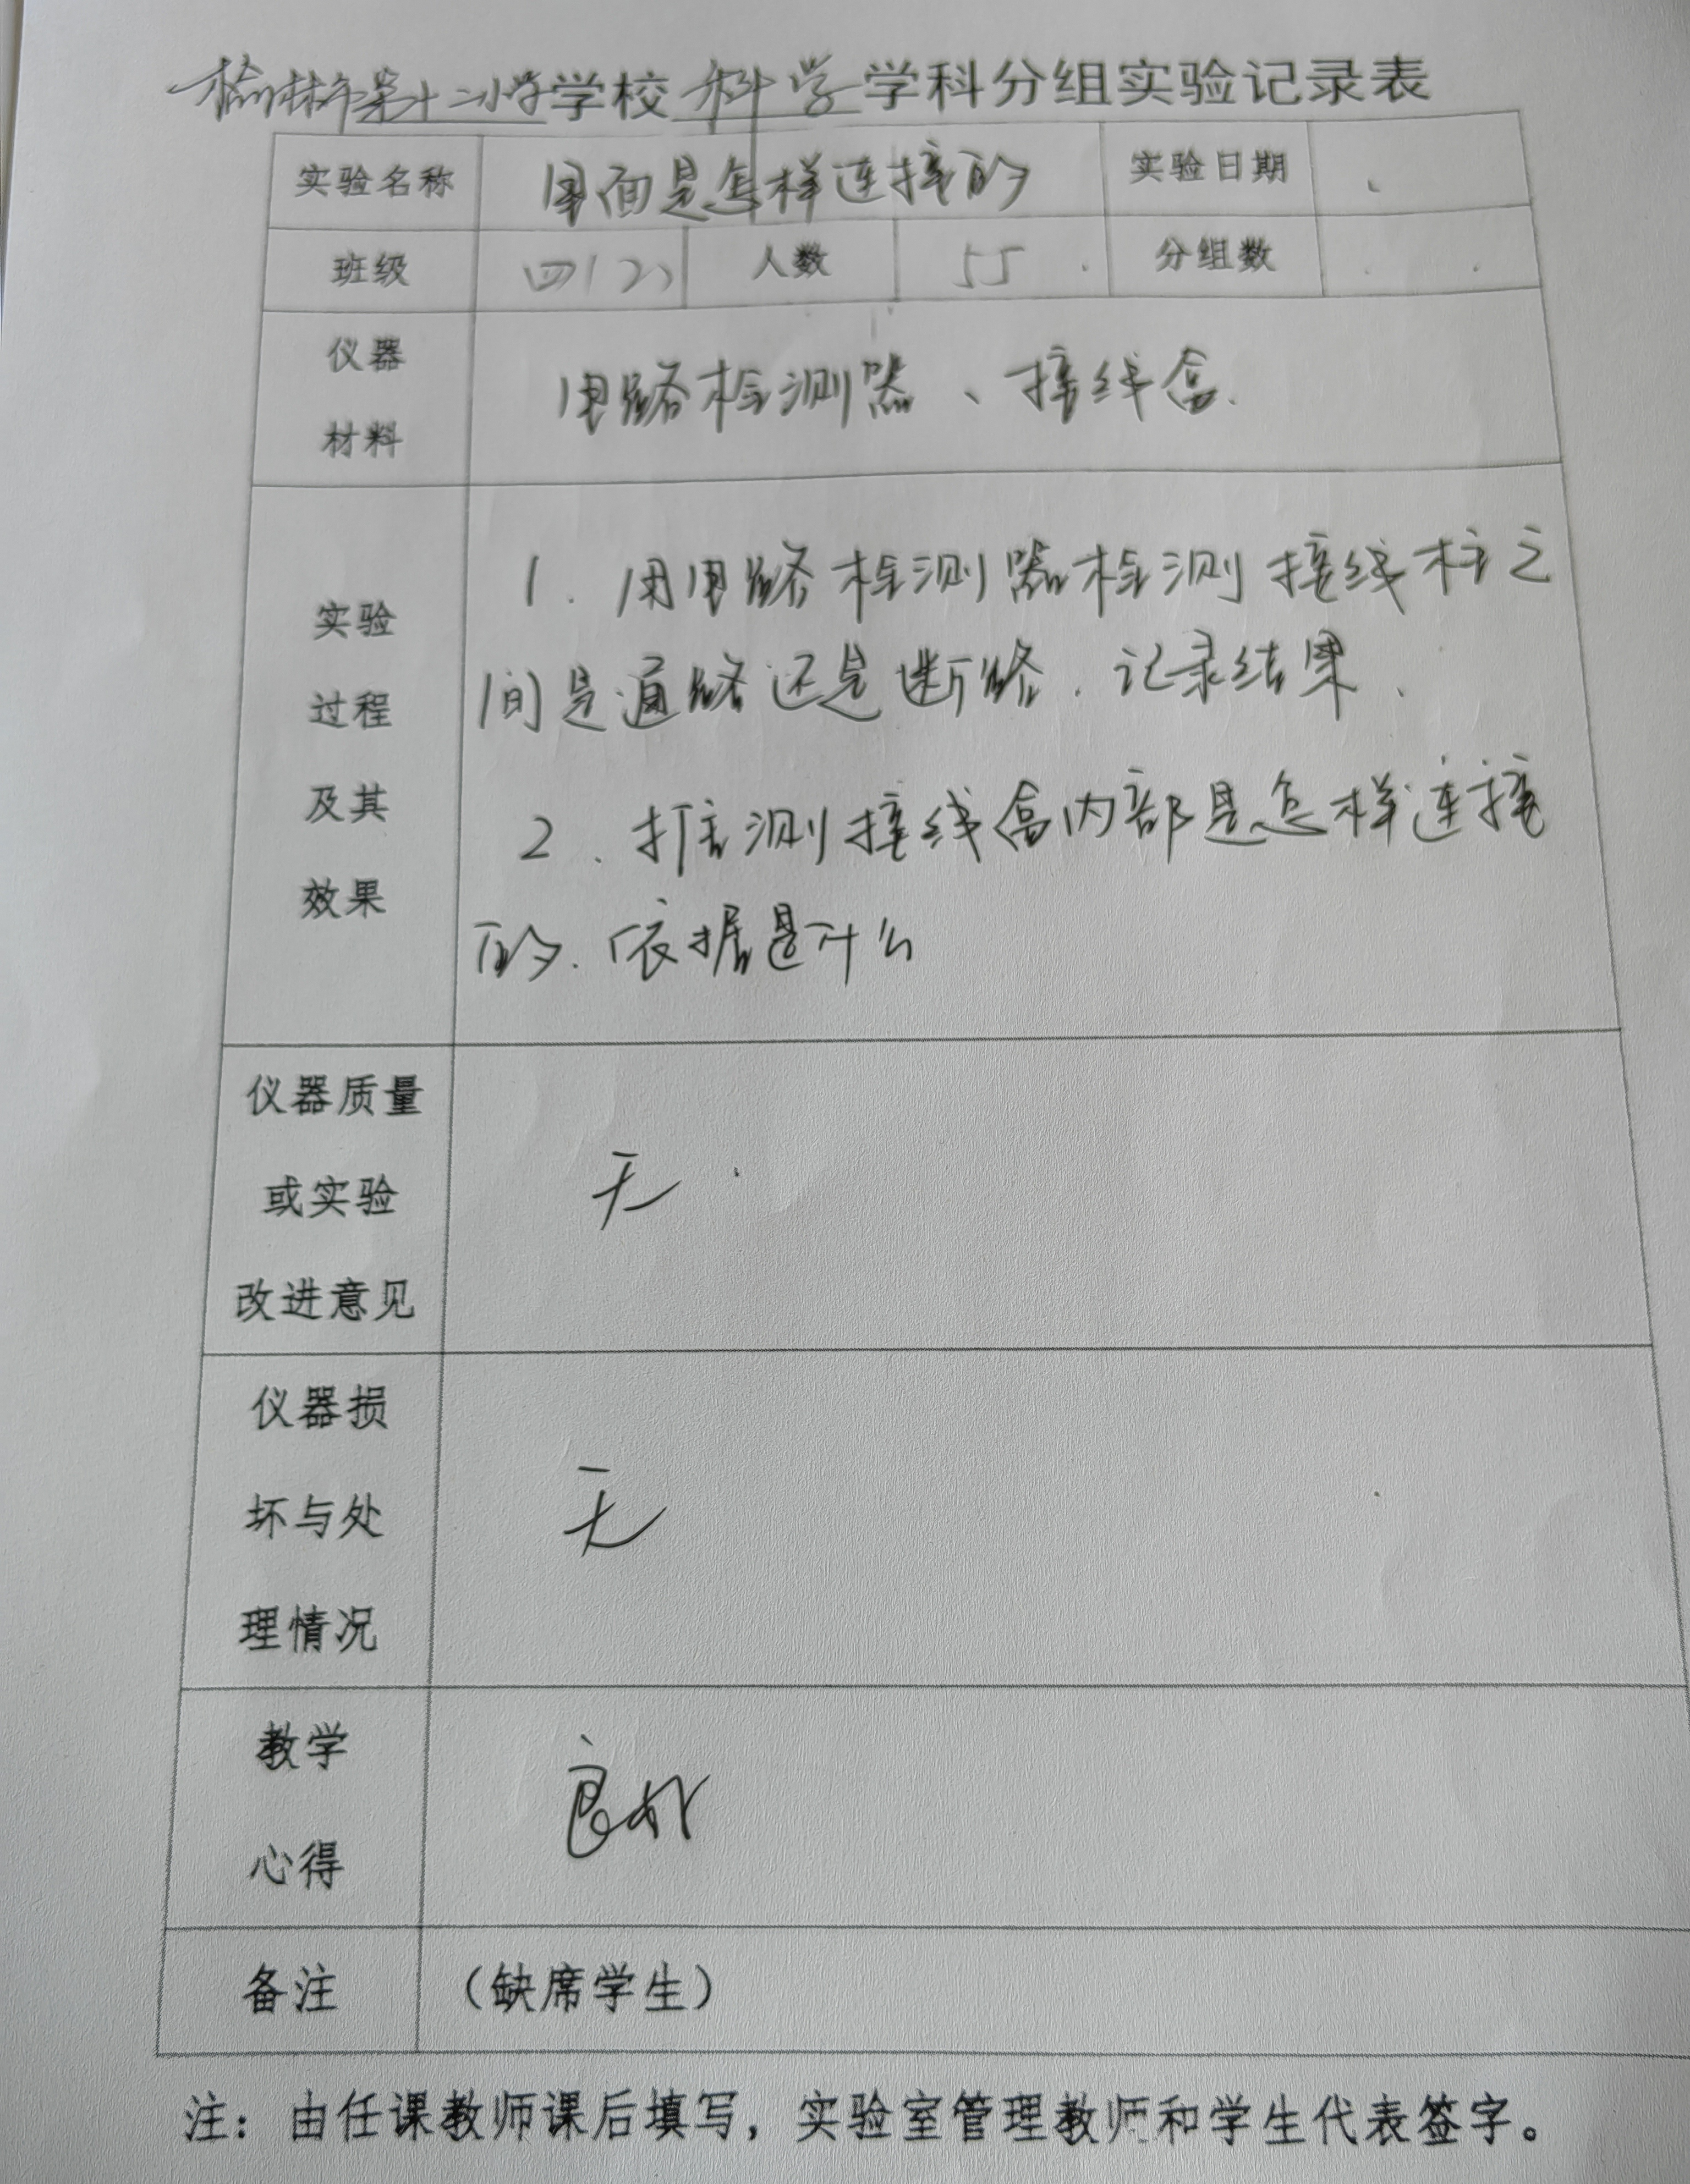 榆林市第十二小学学校 科学 学科分组实验记录表
实验名称 里面是怎样连接的 实验日期
班级 四(2) 人数 55 分组数
仪器
材料
电路检测器、接线盒.
实验
过程
及其
效果
1. 用电路检测器检测接线柱之
间是通路还是断路.记录结果.
2.推测接线盒内部是怎样连接
的.依据是什么
仪器质量
或实验
改进意见
无
仪器损
坏与处
理情况
无
教学
心得
良好
备注 (缺席学生)
注：由任课教师课后填写，实验室管理教师和学生代表签字。